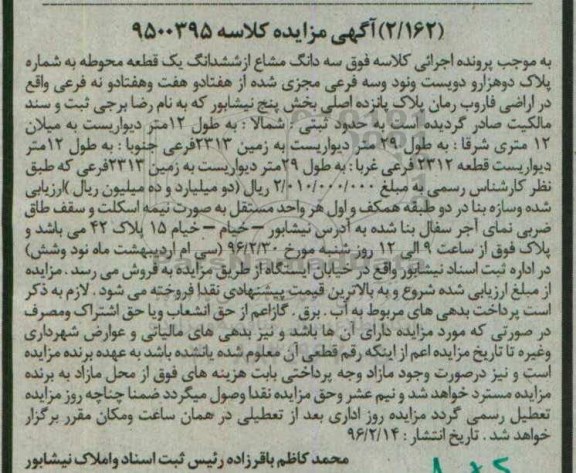 (۲/۱۶۲) آگهی مزایده کلاسه ۹۵۰۰۳۹۵
به موجب پرونده اجرائی کلاسه فوق سه دانگ مشاع ازششدانگ یک قطعه محوطه به شماره
پلاک دوهزارو دویست ونود وسه فرعی مجزی شده از هفتادو هفت وهفتادو نه فرعی واقع
در اراضی فاروب رمان پلاک پانزده اصلی بخش پنج نیشابور که به نام رضا برجی ثبت و سند
مالکیت صادر گردیده است به حدود ثبتی : شمالا : به طول ۱۲متر دیواریست به میلان
۱۲ متری شرقا : به طول ۲۹ متر دیواریست به زمین ۲۳۱۳فرعی جنوبا : به طول ۱۲متر
دیواریست قطعه ۲۳۱۲ فرعی غربا : به طول ۲۹متر دیواریست به زمین ۲۳۱۳فرعی که طبق
نظر کارشناس رسمی به مبلغ ۲/۰۱۰/۰۰۰/۰۰۰ ریال (دو میلیارد و ده میلیون ریال )ارزیابی
شده وسازه بنا در دو طبقه همکف و اول هر واحد مستقل به صورت نیمه اسکلت و سقف طاق
ضربی نمای آجر سفال بنا شده به آدرس نیشابور – خیام – خیام ۱۵ پلاک ۴۲ می باشد و
پلاک فوق از ساعت ۹ الی ۱۲ روز شنبه مورخ ۹۶/۲/۳۰ (سی ام اردیبهشت ماه نود وشش)
در اداره ثبت اسناد نیشابور واقع در خیابان ایستگاه از طریق مزایده به فروش می رسد . مزایده
از مبلغ ارزیابی شده شروع و به بالاترین قیمت پیشنهادی نقدا فروخته می شود . لازم به ذکر
است پرداخت بدهی های مربوط به آب . برق . گازاعم از حق انشعاب ویا حق اشتراک ومصرف
در صورتی که مورد مزایده دارای آن ها باشد و نیز بدهی های مالیاتی و عوارض شهرداری
وغیره تا تاریخ مزایده اعم از اینکه رقم قطعی آن معلوم شده یانشده باشد به عهده برنده مزایده
است و نیز درصورت وجود مازاد وجه پرداختی بابت هزینه های فوق از محل مازاد به برنده
مزایده مسترد خواهد شد و نیم عشر وحق مزایده نقدا وصول میگردد ضمنا چناچه روز مزایده
تعطیل رسمی گردد مزایده روز اداری بعد از تعطیلی در همان ساعت ومکان مقرر برگزار
خواهد شد . تاریخ انتشار : ۹۶/۲/۱۴
محمد کاظم باقرزاده رئیس ثبت اسناد واملاک نیشابور